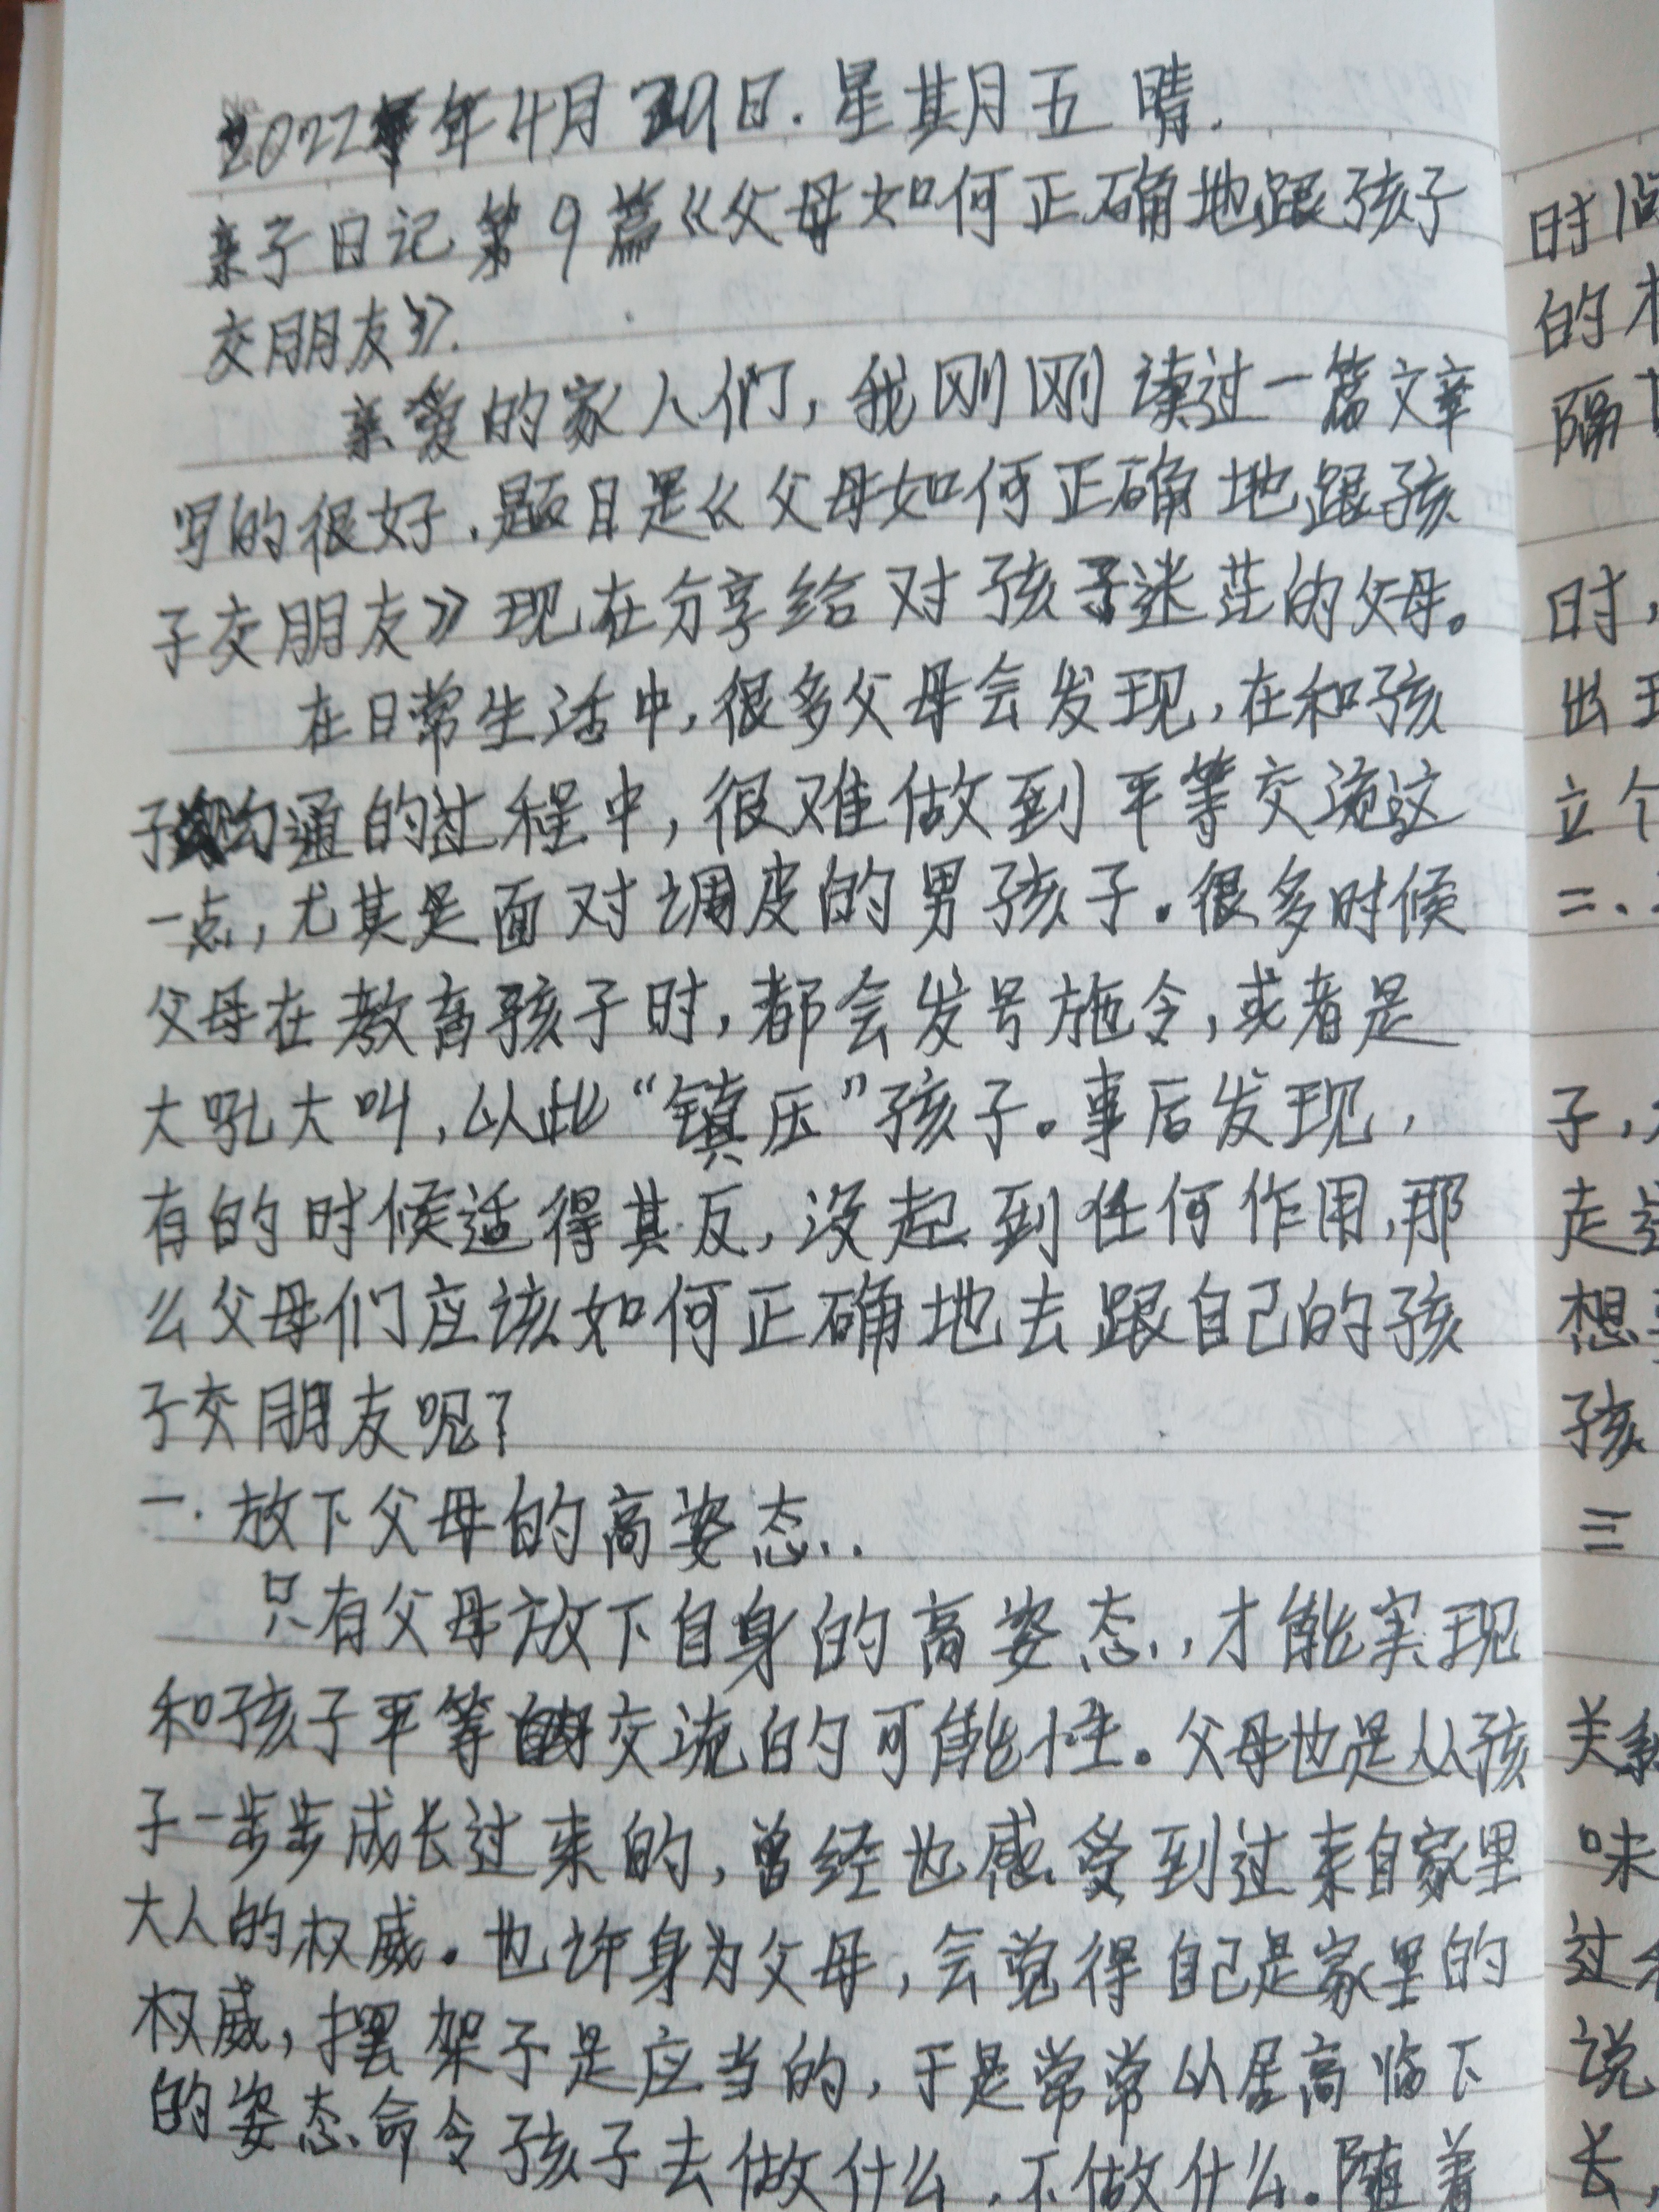 2022年4月29日.星其月五 晴.
亲子日记第9篇《父母如何正确地跟孩子
交朋友》.
亲爱的家人们,我刚刚读过一篇文章
写的很好.题目是《父母如何正确地跟孩
子交朋友》现在分享给对孩子迷茫的父母。
在日常生活中,很多父母会发现,在和孩
子沟通的过程中,很难做到平等交流这
一点,尤其是面对调皮的男孩子。很多时候
父母在教育孩子时,都会发号施令,或者是
大吼大叫,以此“镇压”孩子。事后发现,
有的时候适得其反,没起到任何作用,那
么父母们应该如何正确地去跟自己的孩
子交朋友呢?
一.放下父母的高姿态..
只有父母放下自身的高姿态.,才能实现
和孩子平等交流的可能性。父母也是从孩
子一步步成长过来的,曾经也感受到过来自家里
大人的权威。也许身为父母,会觉得自己是家里的
权威,摆架子是应当的,于是常常以居高临下
的姿态命令孩子去做什么,不做什么。随着
时间
的
隔
时,
出现
立个
二、
子,
走
想
孩
三
关系
味
过
说
长,